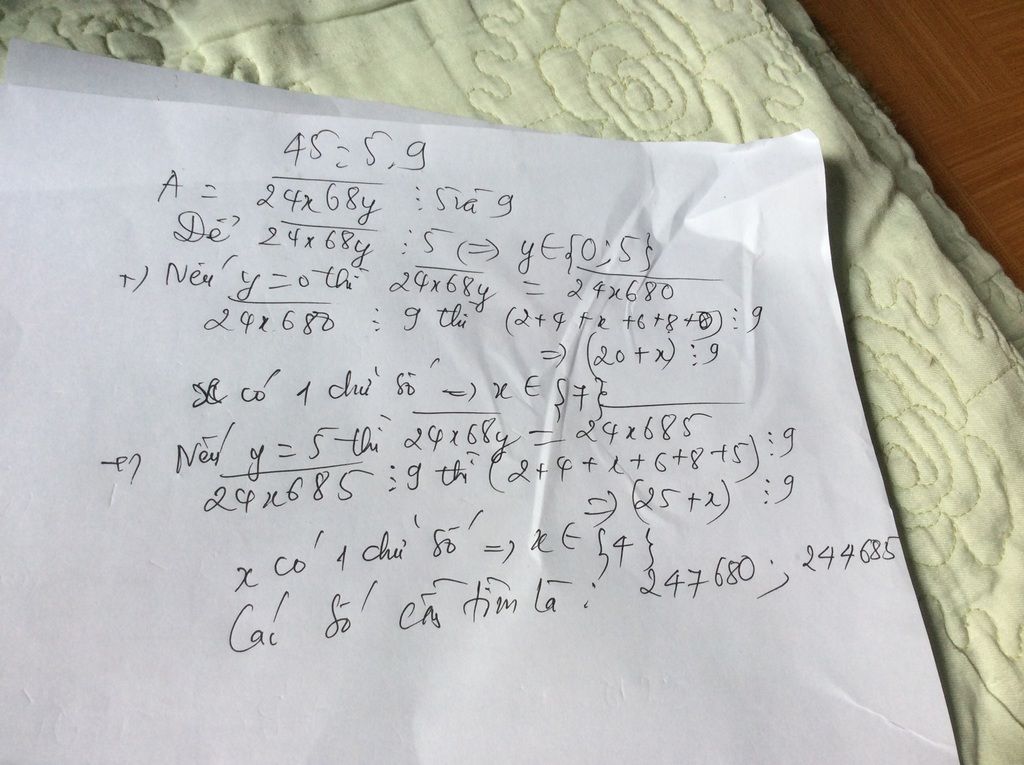 45 = 5.9
A = 24x68y ⋮ 5 và 9
Để 24x68y ⋮ 5 => y ∈ {0;5}
+) Nếu y = 0 thì 24x68y = 24x680
24x680 ⋮ 9 thì (2+4+x+6+8+0) ⋮ 9
=> (20+x) ⋮ 9
x có 1 chữ số => x ∈ {7}
+) Nếu y = 5 thì 24x68y = 24x685
24x685 ⋮ 9 thì (2+4+x+6+8+5) ⋮ 9
=> (25+x) ⋮ 9
x có 1 chữ số => x ∈ {4}
Các số cần tìm là : 247680 ; 244685